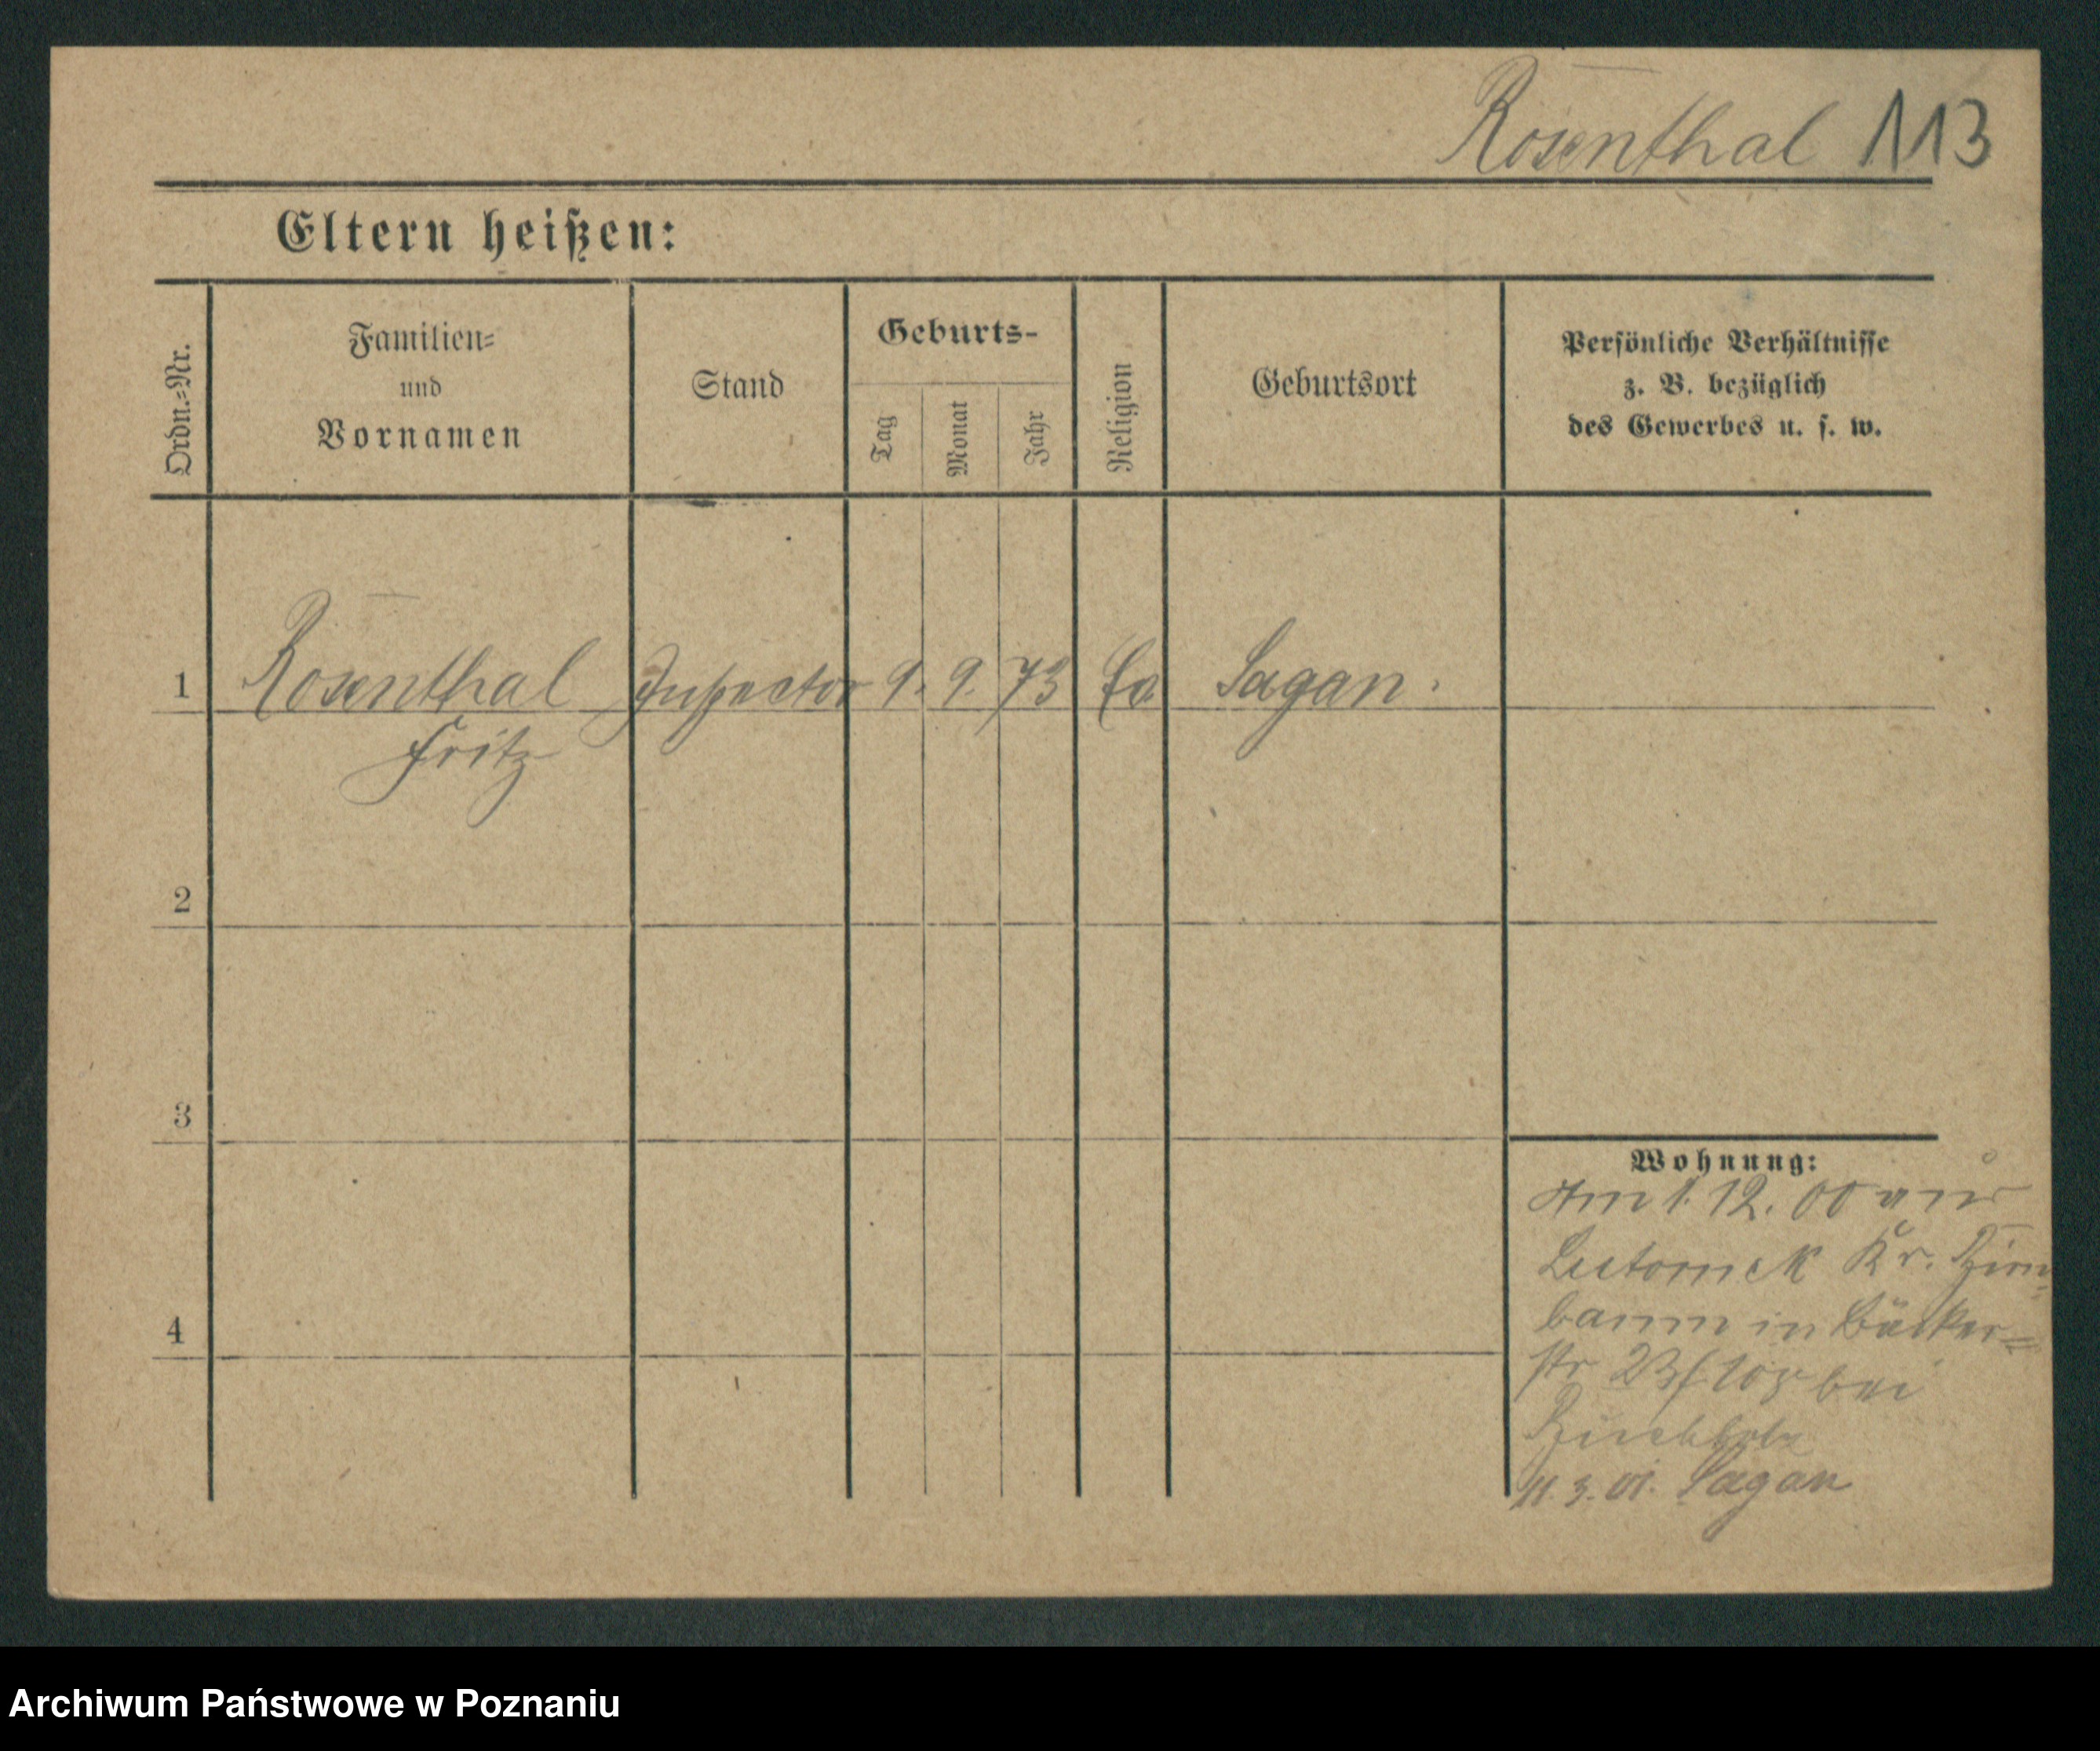 Rosenthal 113
Eltern heißen:
Ordn.=Nr.
Familien=
und
Vornamen
Stand
Geburts-
Tag
Monat
Jahr
Religion
Geburtsort
Persönliche Verhältnisse
z. B. bezüglich
des Gewerbes u. s. w.
1 Rosenthal Inspector 9. 9. 73 Ev Sagan.
Fritz
2
3
4
Wohnung:
Am 1. 12. 00 aus
Lutomek Kr. Birn-
baum in Bäcker=
str 23 bei
Buchholz
11. 3. 01. Sagan
Archiwum Państwowe w Poznaniu